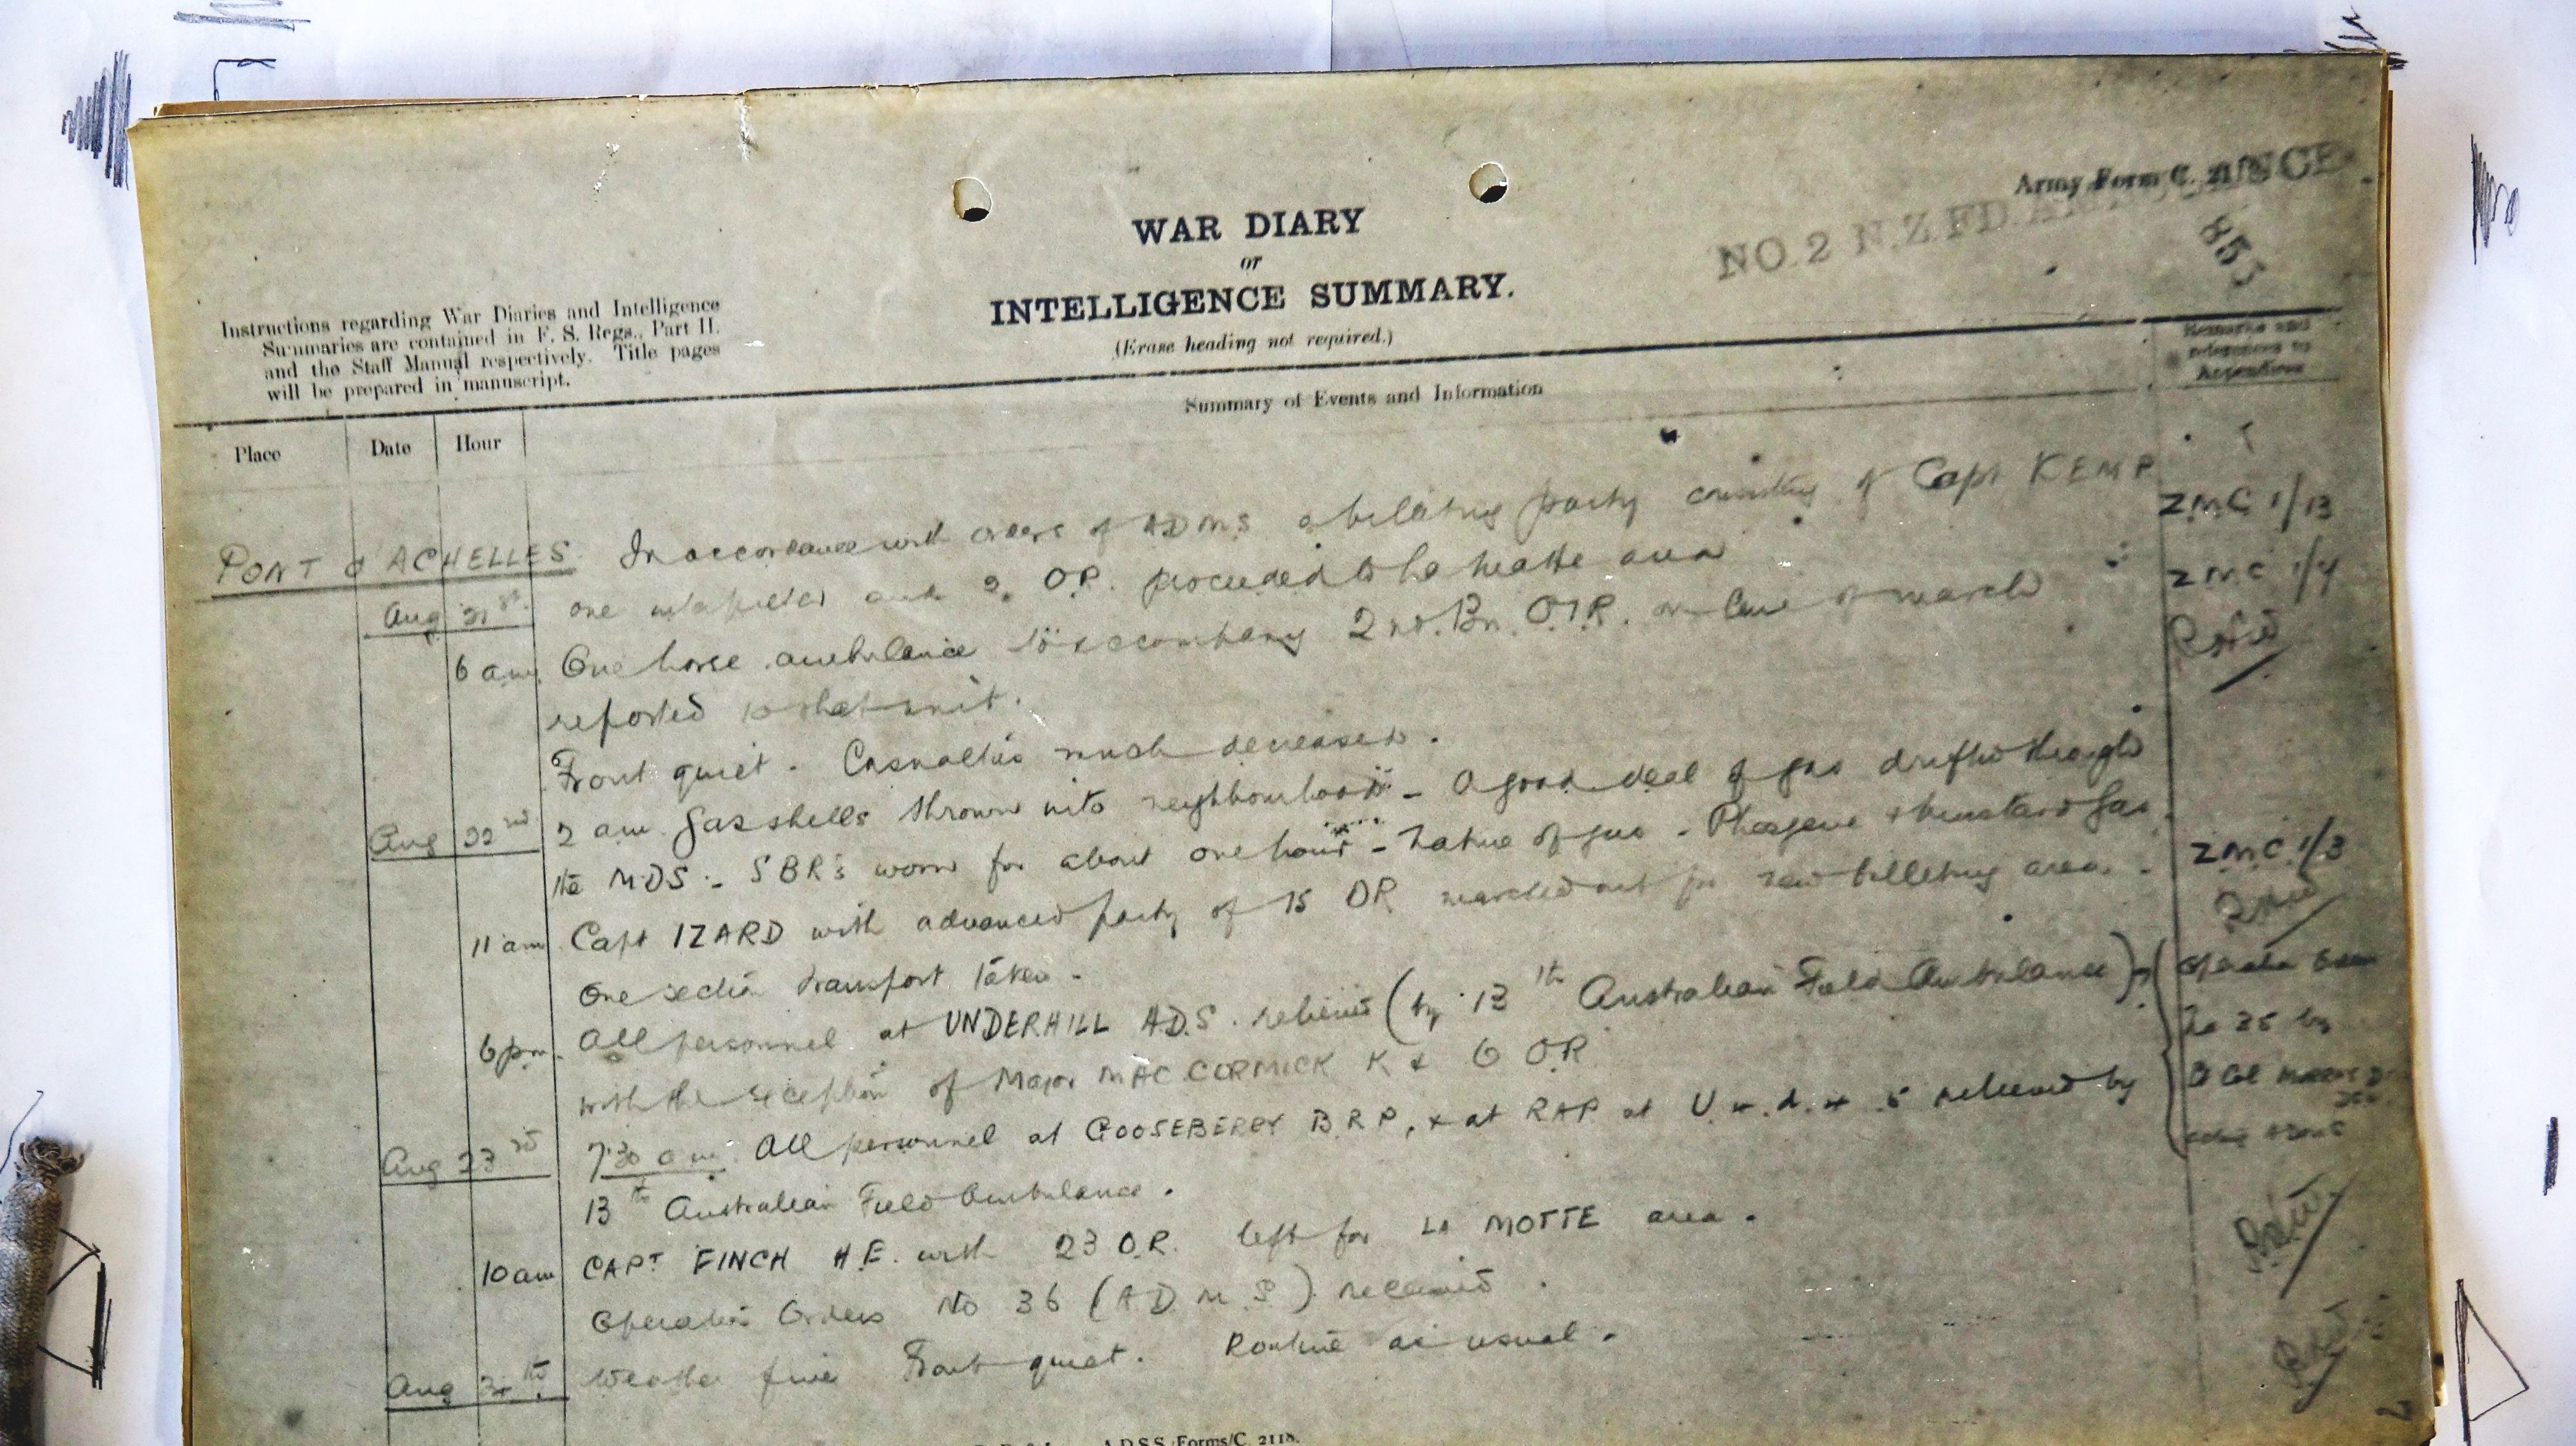 Army Form C. 2118
NO.2 N.Z.FD.AMBULANCE
WAR DIARY
or
INTELLIGENCE SUMMARY.
(Erase heading not required.)
Instructions regarding War Diaries and Intelligence
Summaries are contained in F. S. Regs., Part II.
and the Staff Manual respectively. Title pages
will be prepared in manuscript.
Remarks and
references to
Appendices
Place Date Hour Summary of Events and Information
PONT d'ACHELLES. In accordance with orders of ADMS a billeting party consisting of Capt KEMP ZMC 1/13
Aug 21st. one and 2. OR. proceeded to La Motte area ZMC 1/4
6 am. One horse ambulance to accompany 2nd. Bn. O.I.R. on line of march
reported to that unit.
Front quiet. Casualties much decreased.
Aug 22nd 2 am Gas shells thrown into neighbourhood - A good deal of gas drifted through
the MDS. - SBR's worn for about one hour - Nature of gas - Phosgene & mustard gas. ZMC 1/3
11 am Capt IZARD with advanced party of 15 OR marched out for new billeting area. -
One section transport taken -
6 pm. All personnel at UNDERHILL A.D.S. relieved (by 13th Australian Field Ambulance)
with the exception of Major MACCORMICK K & 6 O.R
No 35 by
Aug 23rd 7.30 am. All personnel at GOOSEBERRY B.R.P, & at RAP at U relieved by
13th Australian Field Ambulance.
10 am CAPT FINCH H.E. with 23 O.R. left for LA MOTTE area.
Operation Orders No 36 (A.D.M.S) received.
Aug 24th. Weather fine Front quiet. Routine as usual.
A.D.S.S./Forms/C. 2118.